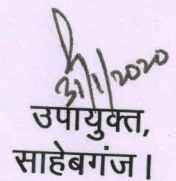 31/1/2020
उपायुक्त,
साहेबगंज।